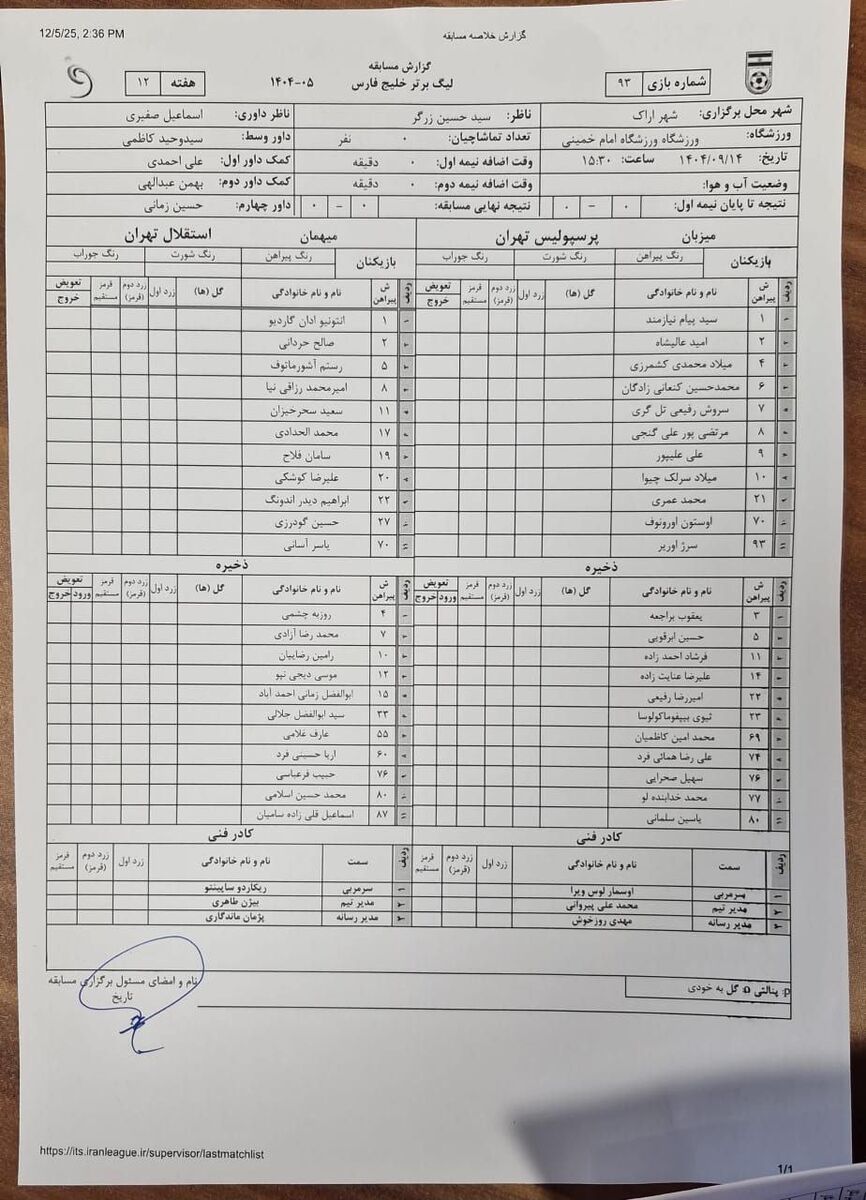 12/5/25, 2:36 PM
گزارش خلاصه مسابقه
گزارش مسابقه
لیگ برتر خلیج فارس ۰۵-۱۴۰۴
شماره بازی ۹۳
هفته ۱۲
شهر محل برگزاری: شهر اراک ناظر: سید حسین زرگر ناظر داوری: اسماعیل صفیری
ورزشگاه: ورزشگاه ورزشگاه امام خمینی تعداد تماشاچیان: ۰ نفر داور وسط: سیدوحید کاظمی
تاریخ: ۱۴۰۴/۰۹/۱۴ ساعت: ۱۵:۳۰ وقت اضافه نیمه اول: ۰ دقیقه کمک داور اول: علی احمدی
وضعیت آب و هوا: وقت اضافه نیمه دوم: ۰ دقیقه کمک داور دوم: بهمن عبدالهی
نتیجه تا پایان نیمه اول: ۰ - ۰ نتیجه نهایی مسابقه: ۰ - ۰ داور چهارم: حسین زمانی
میزبان پرسپولیس تهران
بازیکنان رنگ پیراهن رنگ شورت رنگ جوراب
ردیف ش پیراهن نام و نام خانوادگی گل (ها) زرد اول زرد دوم (قرمز) قرمز مستقیم تعویض خروج
۱ ۱ سید پیام نیازمند
۲ ۲ امید عالیشاه
۳ ۴ میلاد محمدی کشمرزی
۴ ۶ محمدحسین کنعانی زادگان
۵ ۷ سروش رفیعی تل گری
۶ ۸ مرتضی پور علی گنجی
۷ ۹ علی علیپور
۸ ۱۰ میلاد سرلک چیوا
۹ ۲۱ محمد عمری
۱۰ ۷۰ اوستون اورونوف
۱۱ ۹۳ سرژ اوریر
ذخیره
ردیف ش پیراهن نام و نام خانوادگی گل (ها) زرد اول زرد دوم (قرمز) قرمز مستقیم تعویض ورود خروج
۱ ۳ یعقوب براجعه
۲ ۵ حسین ابرقویی
۳ ۱۱ فرشاد احمد زاده
۴ ۱۴ علیرضا عنایت زاده
۵ ۲۲ امیررضا رفیعی
۶ ۲۳ تیوی بیفوماکولوسا
۷ ۶۹ محمد امین کاظمیان
۸ ۷۴ علی رضا همائی فرد
۹ ۷۶ سهیل صحرایی
۱۰ ۷۷ محمد خدابنده لو
۱۱ ۸۰ یاسین سلمانی
کادر فنی
ردیف سمت نام و نام خانوادگی زرد اول زرد دوم (قرمز) قرمز مستقیم
۱ سرمربی اوسمار لوس ویرا
۲ مدیر تیم محمد علی پیروانی
۳ مدیر رسانه مهدی روزخوش
میهمان استقلال تهران
بازیکنان رنگ پیراهن رنگ شورت رنگ جوراب
ردیف ش پیراهن نام و نام خانوادگی گل (ها) زرد اول زرد دوم (قرمز) قرمز مستقیم تعویض خروج
۱ ۱ انتونیو ادان گاردیو
۲ ۲ صالح حردانی
۳ ۵ رستم آشورماتوف
۴ ۸ امیرمحمد رزاقی نیا
۵ ۱۱ سعید سحرخیزان
۶ ۱۷ محمد الحدادی
۷ ۱۹ سامان فلاح
۸ ۲۰ علیرضا کوشکی
۹ ۲۲ ابراهیم دیدر اندونگ
۱۰ ۲۷ حسین گودرزی
۱۱ ۷۰ یاسر آسانی
ذخیره
ردیف ش پیراهن نام و نام خانوادگی گل (ها) زرد اول زرد دوم (قرمز) قرمز مستقیم تعویض ورود خروج
۱ ۴ روزبه چشمی
۲ ۷ محمد رضا آزادی
۳ ۱۰ رامین رضاییان
۴ ۱۲ موسی دیجی نپو
۵ ۱۵ ابوالفضل زمانی احمد آباد
۶ ۳۳ سید ابوالفضل جلالی
۷ ۵۵ عارف غلامی
۸ ۶۰ اریا حسینی فرد
۹ ۷۶ حبیب فرعباسی
۱۰ ۸۰ محمد حسین اسلامی
۱۱ ۸۷ اسماعیل قلی زاده سامیان
کادر فنی
ردیف سمت نام و نام خانوادگی زرد اول زرد دوم (قرمز) قرمز مستقیم
۱ سرمربی ریکاردو ساپینتو
۲ مدیر تیم بیژن طاهری
۳ مدیر رسانه پژمان ماندگاری
p: پنالتی o: گل به خودی
نام و امضای مسئول برگزاری مسابقه
تاریخ
https://its.iranleague.ir/supervisor/lastmatchlist
1/1